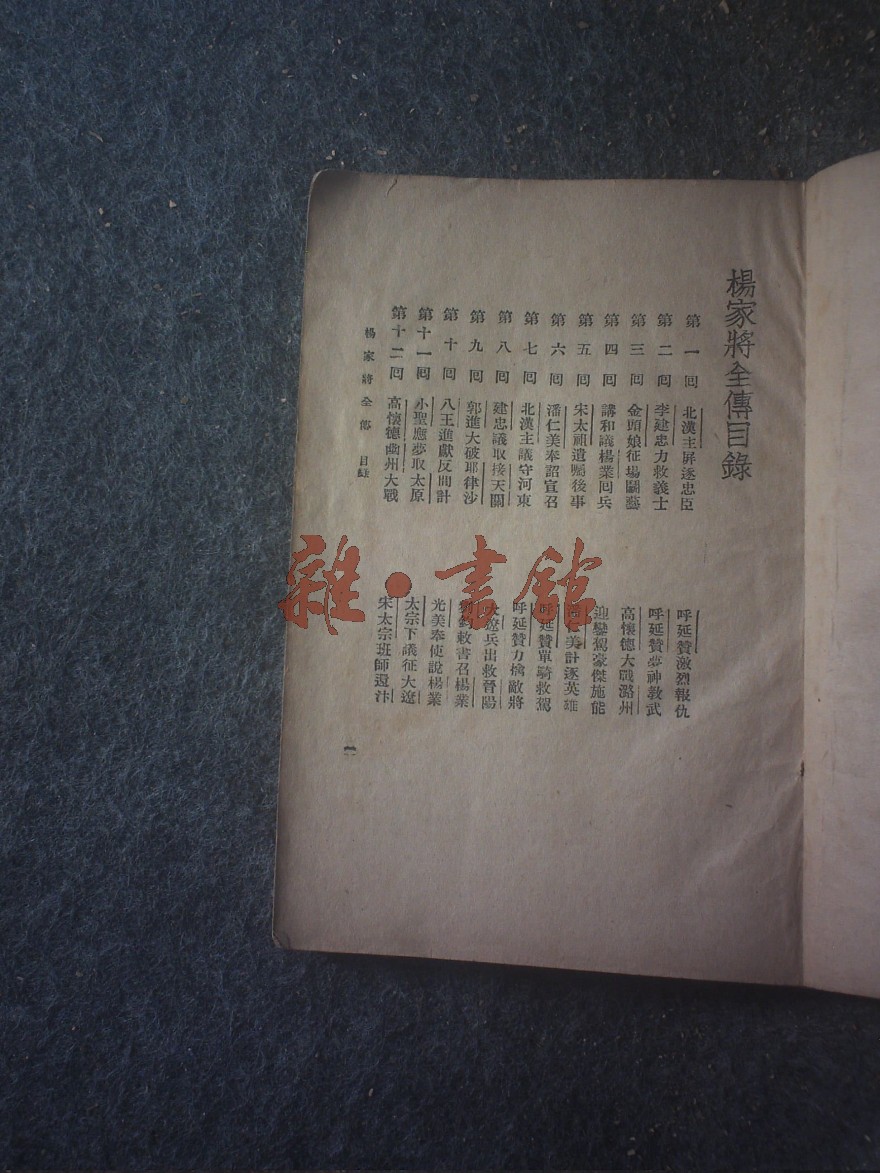 楊家將全傳目錄
第一回 北漢主屏逐忠臣 呼延贊激烈報仇
第二回 李建忠力救義士 呼延贊夢神教武
第三回 金頭娘征場鬭藝 高懷德大戰潞州
第四回 講和議楊業回兵 迎鑾駕豪傑施能
第五回 宋太祖遺囑後事 潘仁美計逐英雄
第六回 潘仁美奉詔宣召 呼延贊單騎救駕
第七回 北漢主議守河東 呼延贊力擒敵將
第八回 建忠議取接天關 大遼兵出救晉陽
第九回 郭進大破耶律沙 劉鈞敕書召楊業
第十回 八王進獻反間計 光美奉使說楊業
第十一回 小聖應夢取太原 太宗下議征大遼
第十二回 高懷德幽州大戰 宋太宗班師還汴
楊家將全傳 目錄
一
雜·書館